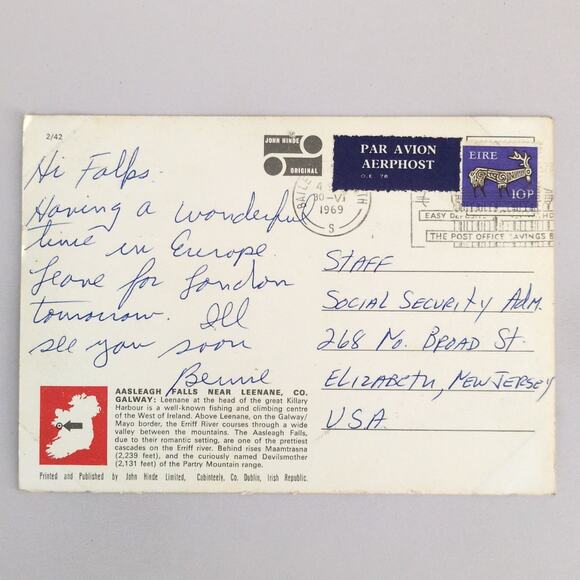 2/42
JOHN HINDE
ORIGINAL
PAR AVION
AERPHOST
O.E. 78
EIRE
10P
4
30-VI
1969
S
THE POST OFFICE SAVINGS B
Hi Falps.
Having a wonderful
time in Europe.
Leave for London
tomorrow. Ill
see you soon
Bernie
STAFF
SOCIAL SECURITY ADM.
268 No. BROAD St.
ELIZABETH, NEW JERSEY
U.S.A.
AASLEAGH FALLS NEAR LEENANE, CO.
GALWAY: Leenane at the head of the great Killary
Harbour is a well-known fishing and climbing centre
of the West of Ireland. Above Leenane, on the Galway/
Mayo border, the Erriff River courses through a wide
valley between the mountains. The Aasleagh Falls,
due to their romantic setting, are one of the prettiest
cascades on the Erriff river. Behind rises Maamtrasna
(2,239 feet) and the curiously named Devilsmother
(2,131 feet) of the Partry Mountain range.
Printed and Published by John Hinde Limited, Cabinteely, Co. Dublin, Irish Republic.